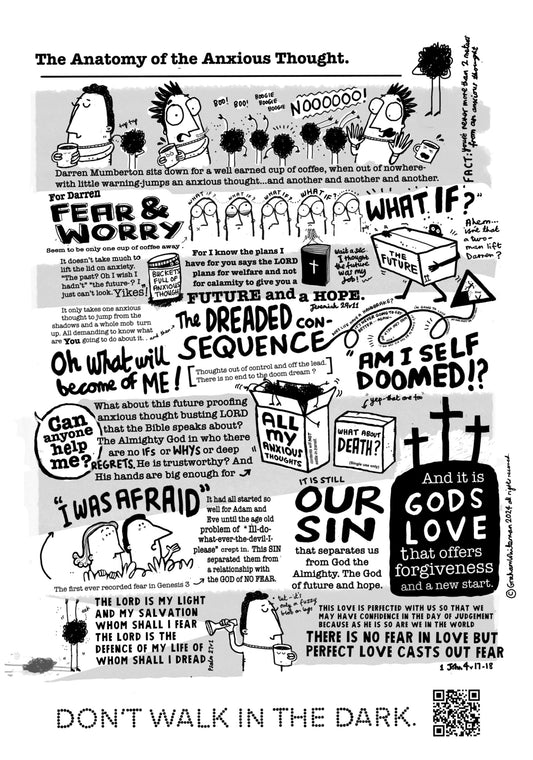 The Anatomy of the Anxious Thought.
FACT: you're never more than 2 metres
from an anxious thought
tap tap
BOO!
BOO!
BOOGIE
BOOGIE
BOOGIE
NOOOOOO!
Darren Mumberton sits down for a well earned cup of coffee, when out of nowhere-
with little warning-jumps an anxious thought...and another and another and another.
For Darren
FEAR &
WORRY
Seem to be only one cup of coffee away
WHAT IF?
WHAT IF?
WHAT IF?
WHAT IF?
WHAT IF?"
Ahem...
isn't that
a two-
man lift
Darren?
It doesn't take much to
lift the lid on anxiety.
"The past? Oh I wish I
hadn't" "the future-? I
just can't look. Yikes!
BUCKETS
FULL OF
ANXIOUS
THOUGHT
For I know the plans I
have for you says the LORD
plans for welfare and not
for calamity to give you a
FUTURE and a HOPE.
Jeremiah 29v11
Wait a sec
I thought
the future
was my
job!
THE
FUTURE
It only takes one anxious
thought to jump from the
shadows and a whole mob turn
up. All demanding to know what
are You going to do about it..
and then
The DREADED CON-
SEQUENCE
Oh What will
become of ME!
Thoughts out of control and off the lead.
There is no end to the doom dream ?
"AM I SELF
DOOMED!?
yep-that one to
Can
anyone
help
me?
What about this future proofing
anxious thought busting LORD
that the Bible speaks about?
The Almighty God in who there
are no IFs or WHYS or deep
REGRETS. He is trustworthy? And
His hands are big enough for
ALL
MY
ANXIOUS
THOUGHTS
WHAT ABOUT
DEATH?
(Single use only)
And it is
GODS
LOVE
that offers
forgiveness
and a new start.
"I WAS AFRAID"
It had all started so
well for Adam and
Eve until the age old
problem of "Ill-do-
what-ever-the-devil-I-
please" crept in. This SIN
separated them from
a relationship with
the GOD of NO FEAR.
The first ever recorded fear in Genesis 3
IT IS STILL
OUR
SIN
that separates us
from God the
Almighty. The God
of future and hope.
© Graham Whiteman 2024 all rights reserved
THE LORD IS MY LIGHT
AND MY SALVATION
WHOM SHALL I FEAR
THE LORD IS THE
DEFENCE OF MY LIFE OF
WHOM SHALL I DREAD
Psalm 27v1
but - it's
only a fuzzy
blob on legs
THIS LOVE IS PERFECTED WITH US SO THAT WE
MAY HAVE CONFIDENCE IN THE DAY OF JUDGEMENT
BECAUSE AS HE IS SO ARE WE IN THE WORLD
THERE IS NO FEAR IN LOVE BUT
PERFECT LOVE CASTS OUT FEAR
1 John 4v17-18
DON'T WALK IN THE DARK.